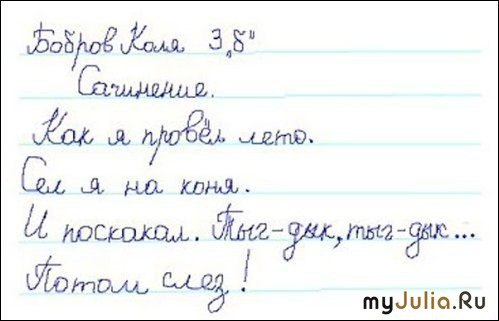 Бобров Коля 3 „б"
Сачинение.
Как я провёл лето.
Сел я на коня.
И поскакал. Тыг-дык, тыг-дык...
Патом слез!
myJulia.Ru